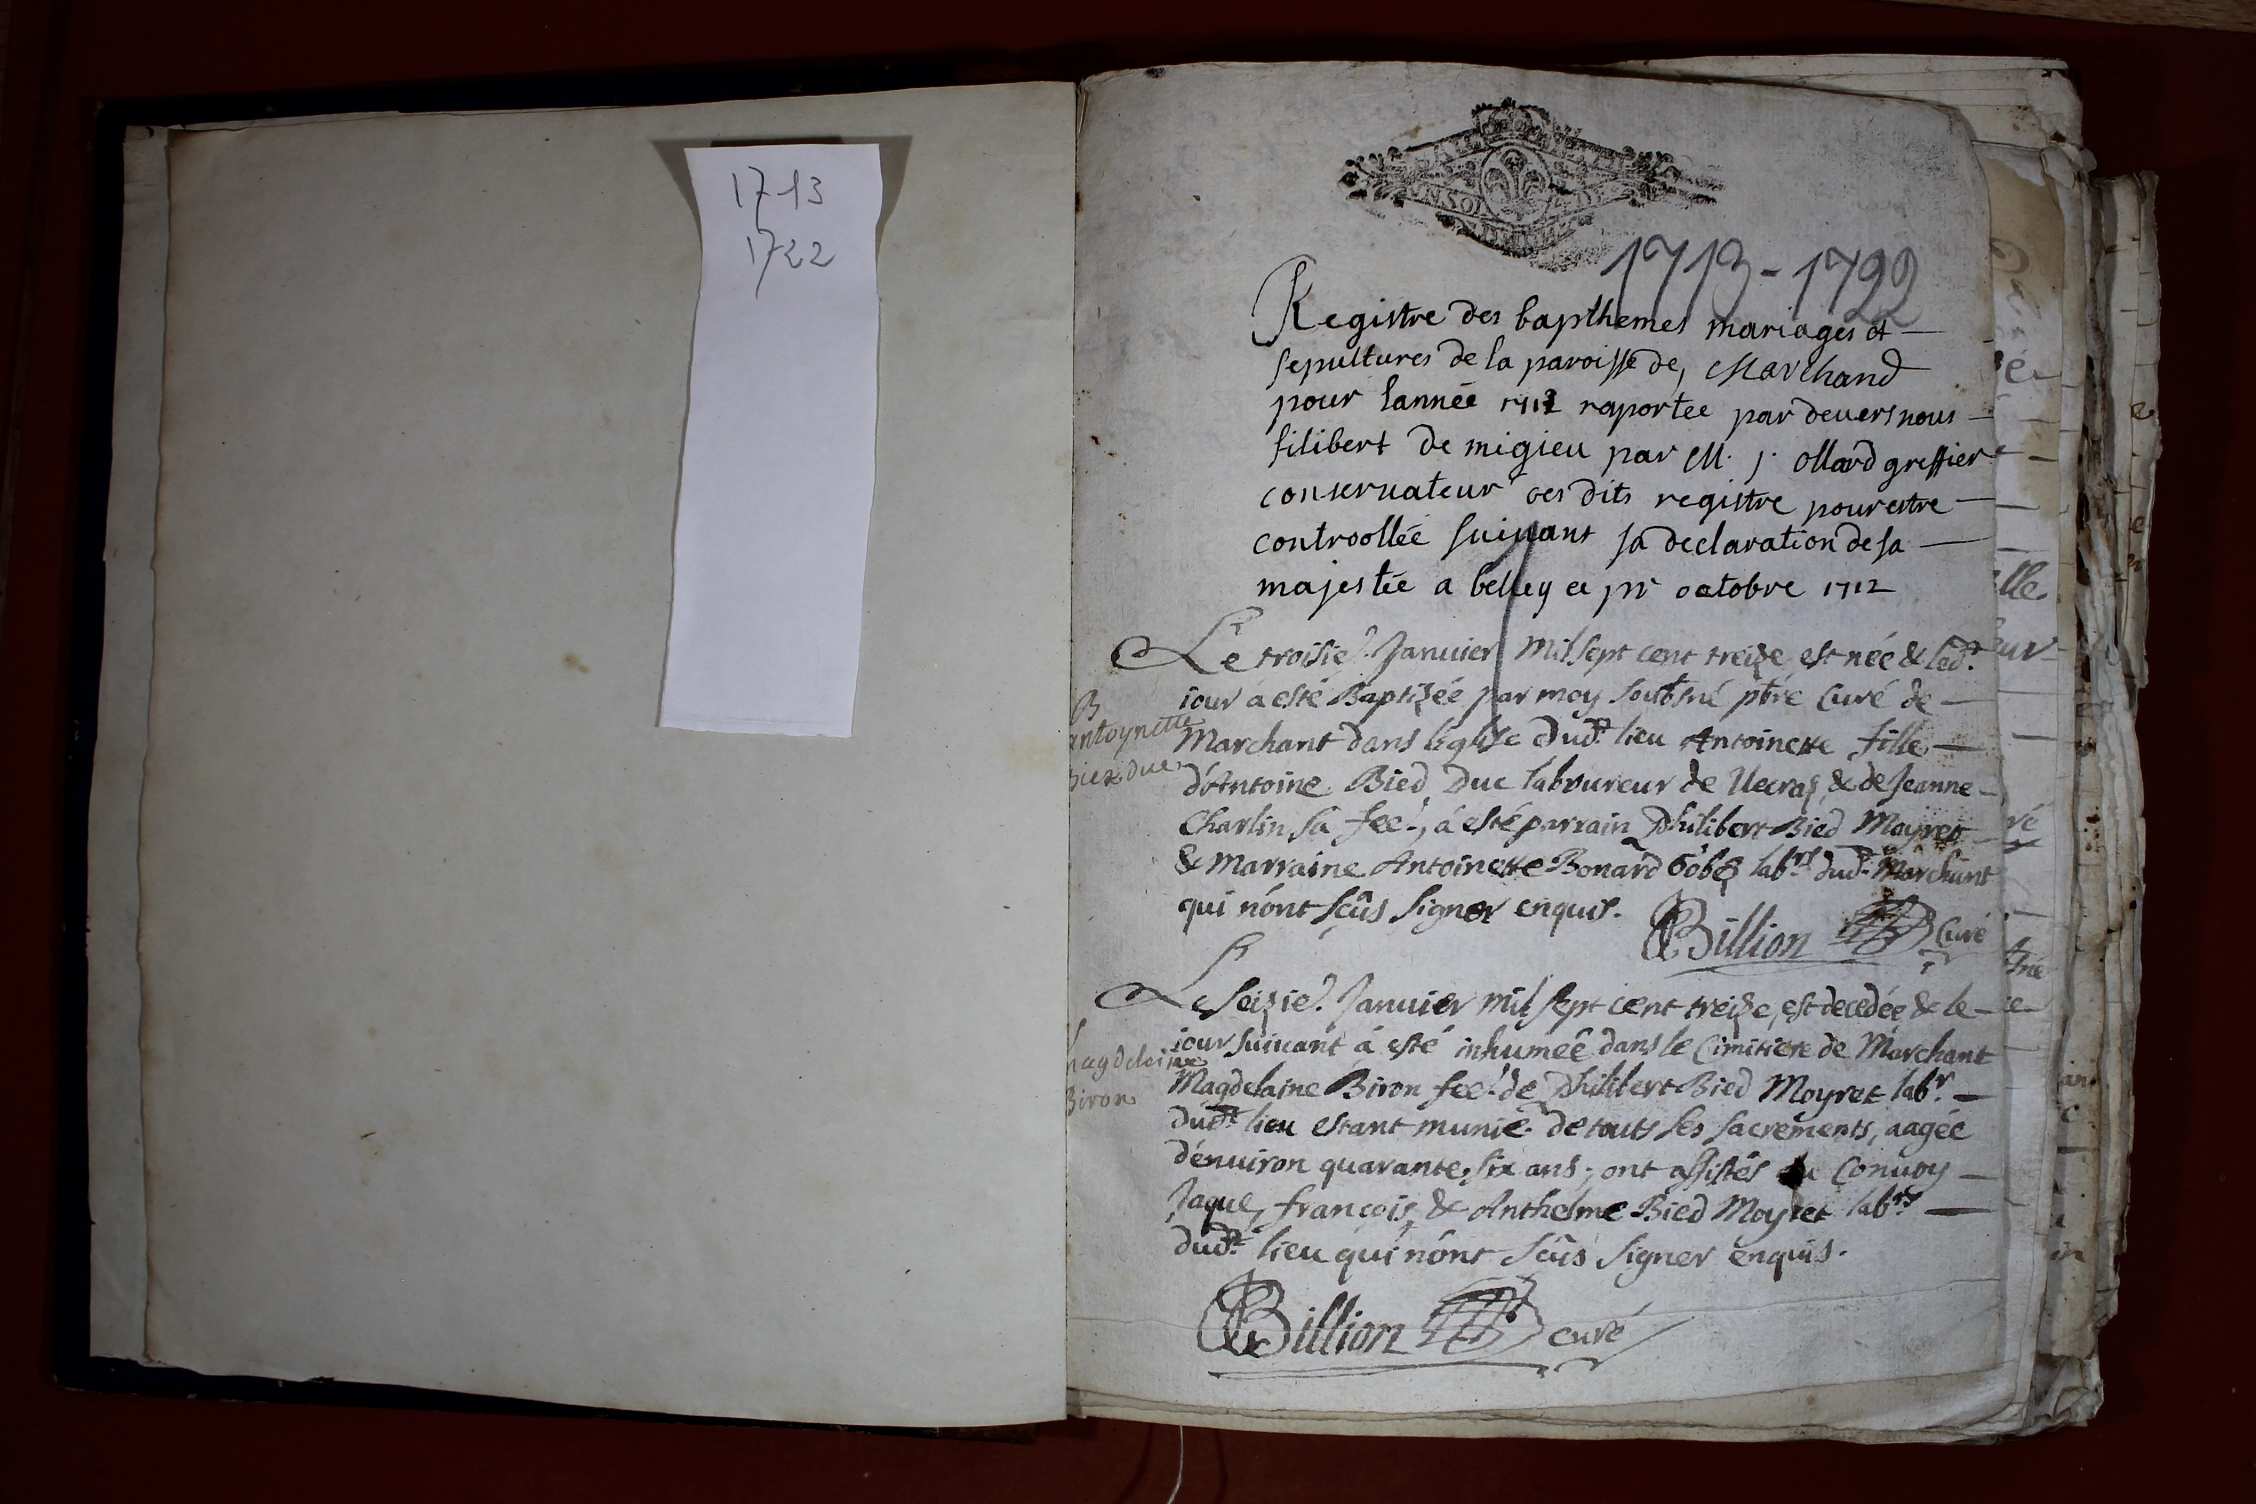 1713
1722
1713-1722
Registre des bapthemes mariages et
sepultures de la paroisse de, Marchand
pour lannée 1712 raportee par deuers nous
filibert de migieu par M. j. ollard greffier
conseruateur des dits registre pour estre
controollée suiuant sa declaration de sa
majestée a belley ce pr octobre 1712
Le troisie. Januier Mil sept cent treize est née & led.t
B
iour à esté Baptizée par moy soubsné pbre Curé de
antoynette
Marchant dans léglise dud.t lieu Antoinette fille
bied duc
d'Antoine Bied Duc laboureur de & de Jeanne
Charlin sa fee., à esté parrain Philibert Bied Moyret
& Marraine Antoinette Bonard lab.rs dud. Marchant
qui n'ont sçûs signer enquis.
Billion Curé
Le seizie. Januier mil sept cent treize, est decedée & le
iour suiuant à esté inhumée dans le Cimitiere de Marchant
magdeleine
Magdelaine Biron fee. de Philibert Bied Moyret lab.r
Biron
dud.t lieu estant munie de touts ses sacrements, aagée
d'enuiron quarante, six ans, ont assistés au Conuoy
Jaque, françois, & Anthelme Bied Moyret lab.rs
dud.t lieu qui n'ont sçûs signer enquis.
Billion curé